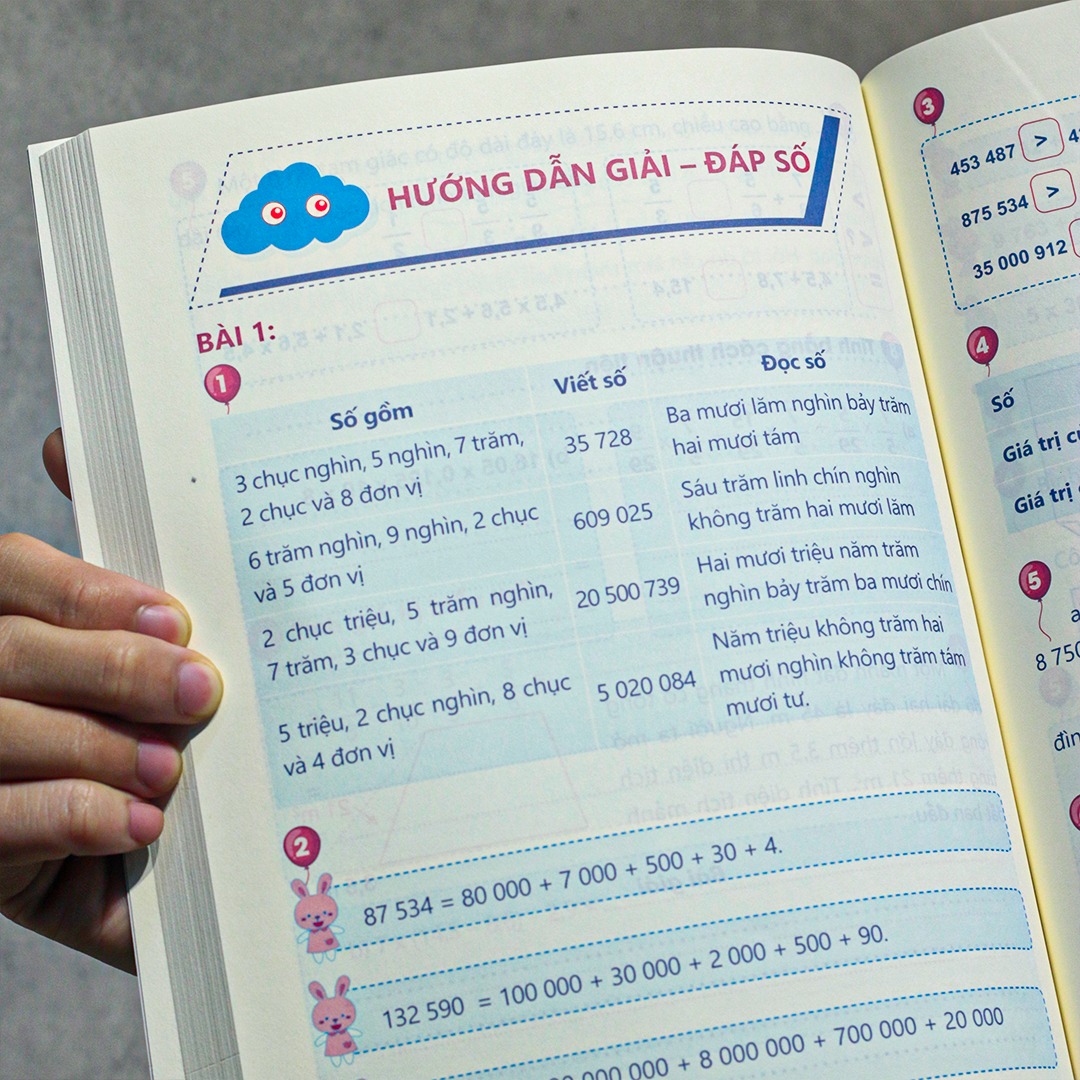 HƯỚNG DẪN GIẢI – ĐÁP SỐ
BÀI 1:
1
Số gồm
Viết số
Đọc số
3 chục nghìn, 5 nghìn, 7 trăm,
2 chục và 8 đơn vị
35 728
Ba mươi lăm nghìn bảy trăm
hai mươi tám
6 trăm nghìn, 9 nghìn, 2 chục
và 5 đơn vị
609 025
Sáu trăm linh chín nghìn
không trăm hai mươi lăm
2 chục triệu, 5 trăm nghìn,
7 trăm, 3 chục và 9 đơn vị
20 500 739
Hai mươi triệu năm trăm
nghìn bảy trăm ba mươi chín
5 triệu, 2 chục nghìn, 8 chục
và 4 đơn vị
5 020 084
Năm triệu không trăm hai
mươi nghìn không trăm tám
mươi tư.
2
87 534 = 80 000 + 7 000 + 500 + 30 + 4.
132 590 = 100 000 + 30 000 + 2 000 + 500 + 90.
000 000 + 8 000 000 + 700 000 + 20 000
3
453 487 > 4
875 534 >
35 000 912
4
Số
Giá trị
Giá trị
5
8 750